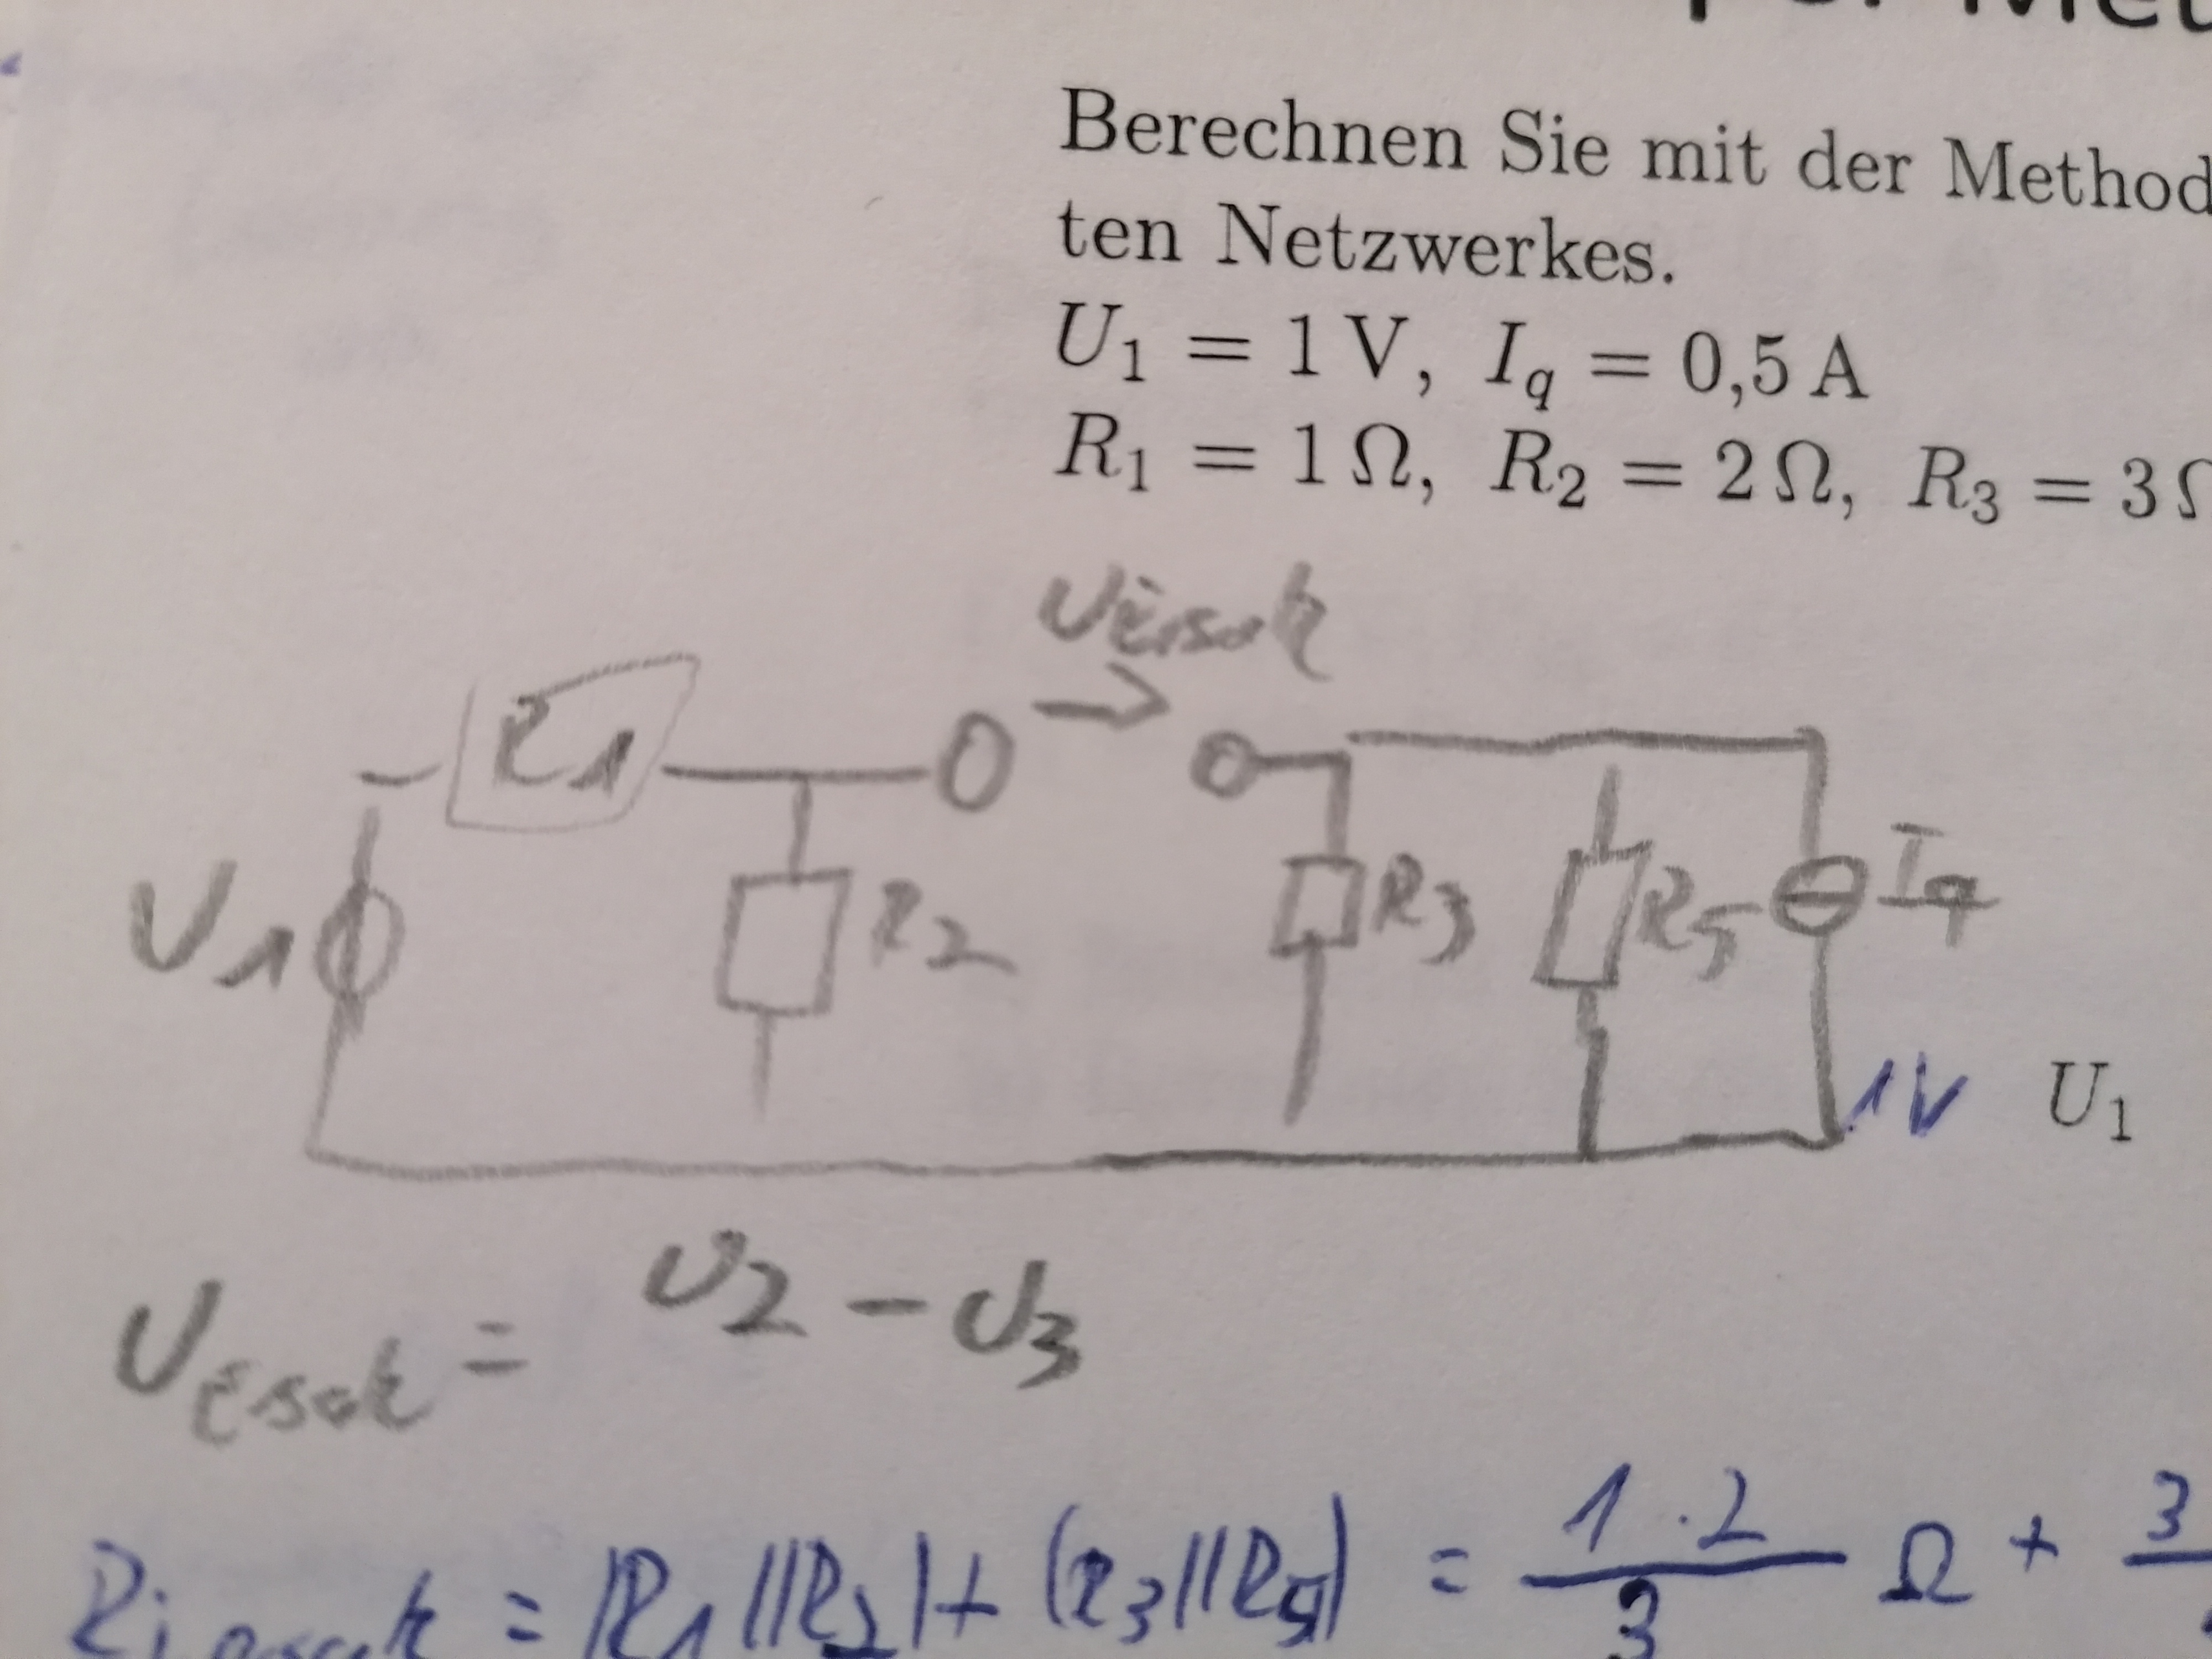 Berechnen Sie mit der Method
ten Netzwerkes.
U₁ = 1 V, I_q = 0,5 A
R₁ = 1 Ω, R₂ = 2 Ω, R₃ = 3 Ω
U_ersatz
R1
U1
R2
R3
R5
Iq
1V U₁
U_ersatz = U2 - U3
R_i = (R1 || R2) + (R3 || R5) = 1 · 2 / 3 Ω + 3